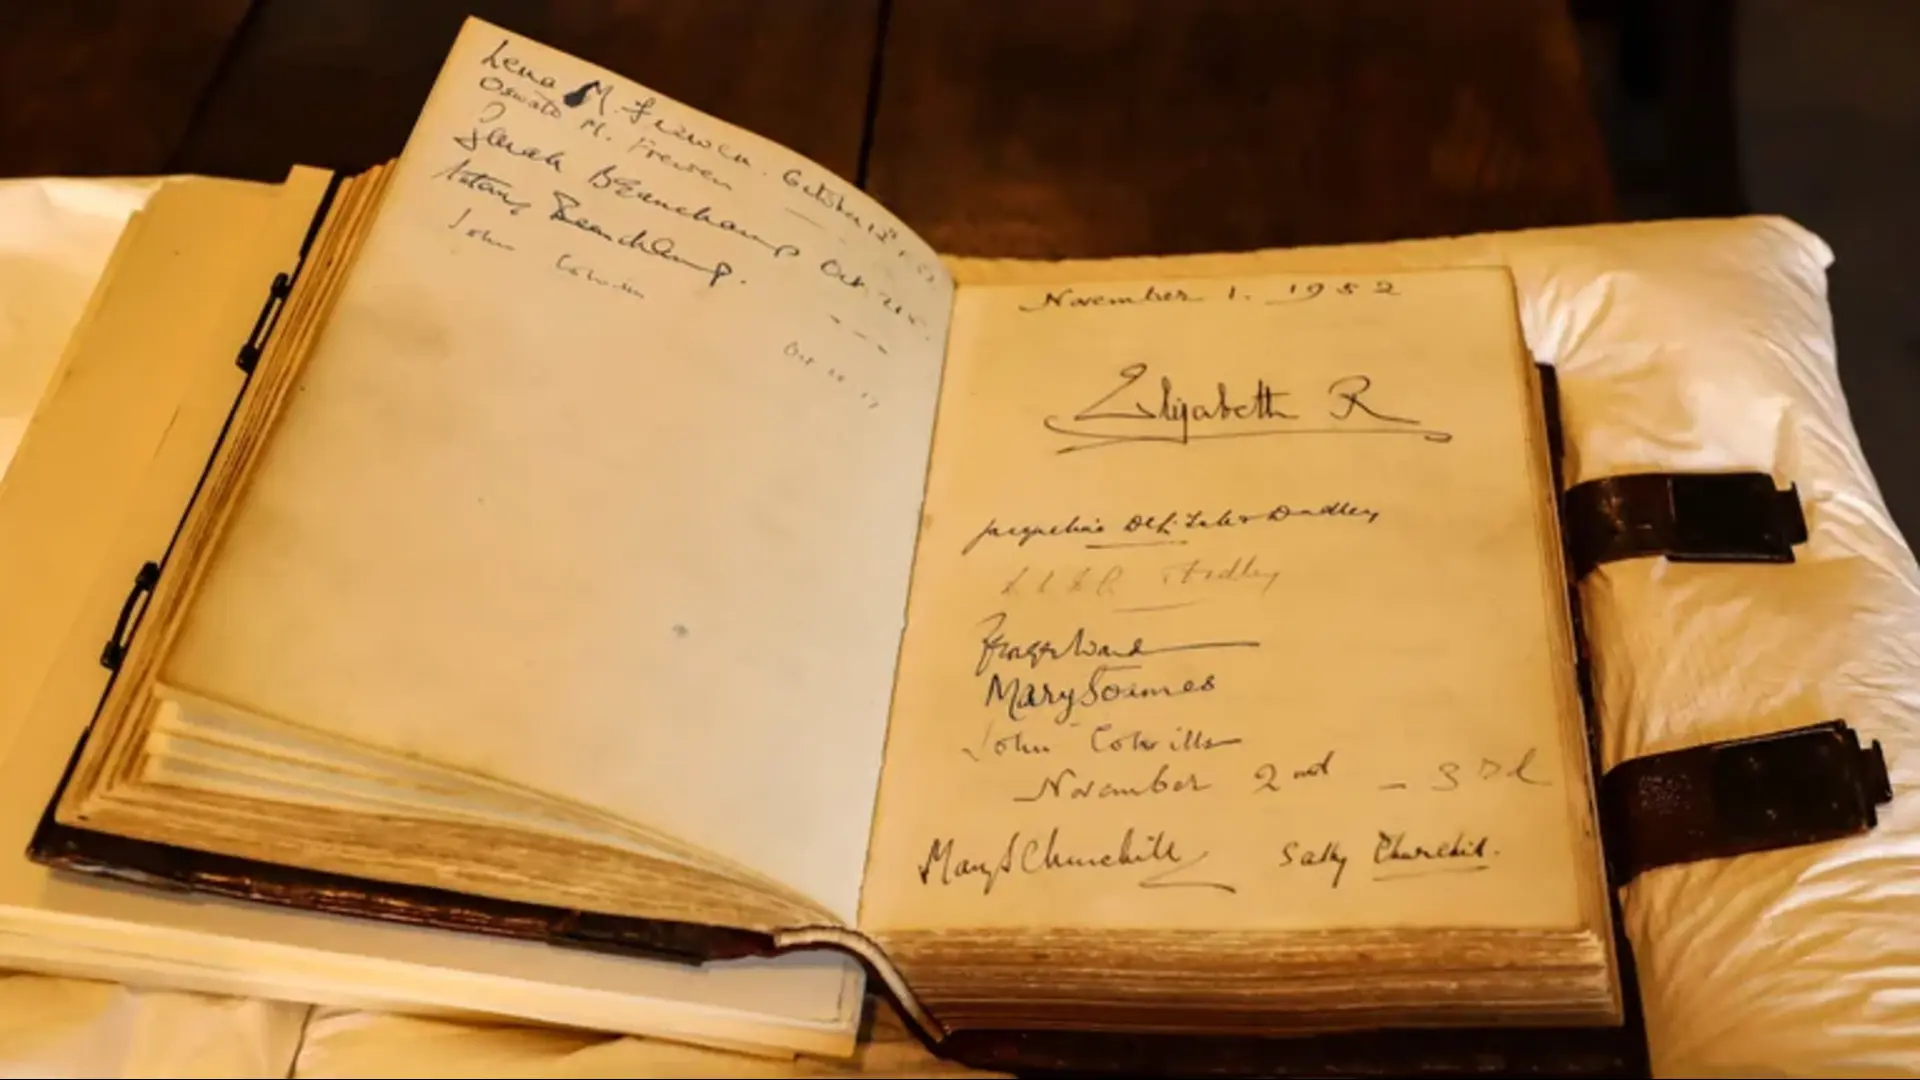 Lena M. Frewen. October 13th
Oswald M. Frewen
Sarah Beauchamp Oct.
Antony Beauchamp.
John Colville
Oct
November 1. 1952
Elizabeth R
Jacqueline Dudley
Dudley
Mary Soames
John Colville
November 2nd - 3rd
Mary S Churchill
Sally Churchill.